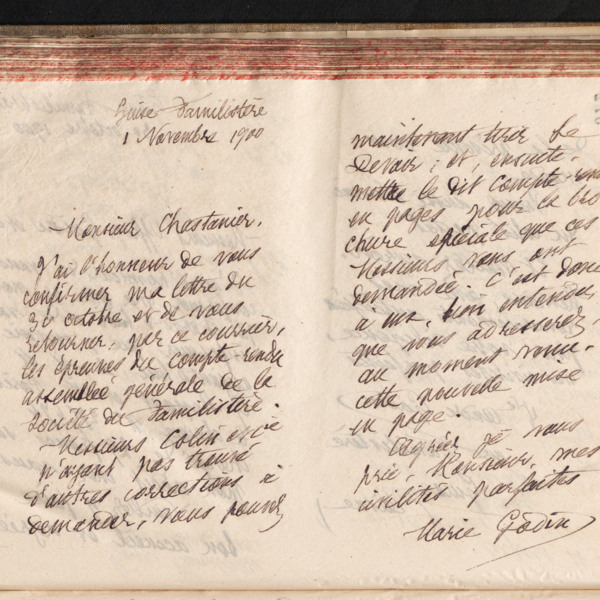 Guise Familistère
1 Novembre 1900
Monsieur Chastanier.
J'ai l'honneur de vous
confirmer ma lettre du
30 octobre et de vous
retourner, par ce courrier,
les épreuves du compte-rendu
assemblée générale de la
Société du Familistère.
Messieurs Colin et
n'ayant pas trouvé
d'autres corrections à
demander, vous pouvez
maintenant tirer le
Devoir; et, ensuite,
mettre le dit compte-rendu
en pages pour la bro
chure spéciale que ces
Messieurs vous ont
demandée. C'est donc
à eux, bien entendu,
que vous adresserez,
au moment voulu,
cette nouvelle mise
en page.
Agréez je vous
prie, Monsieur, mes
civilités parfaites
Marie Godin